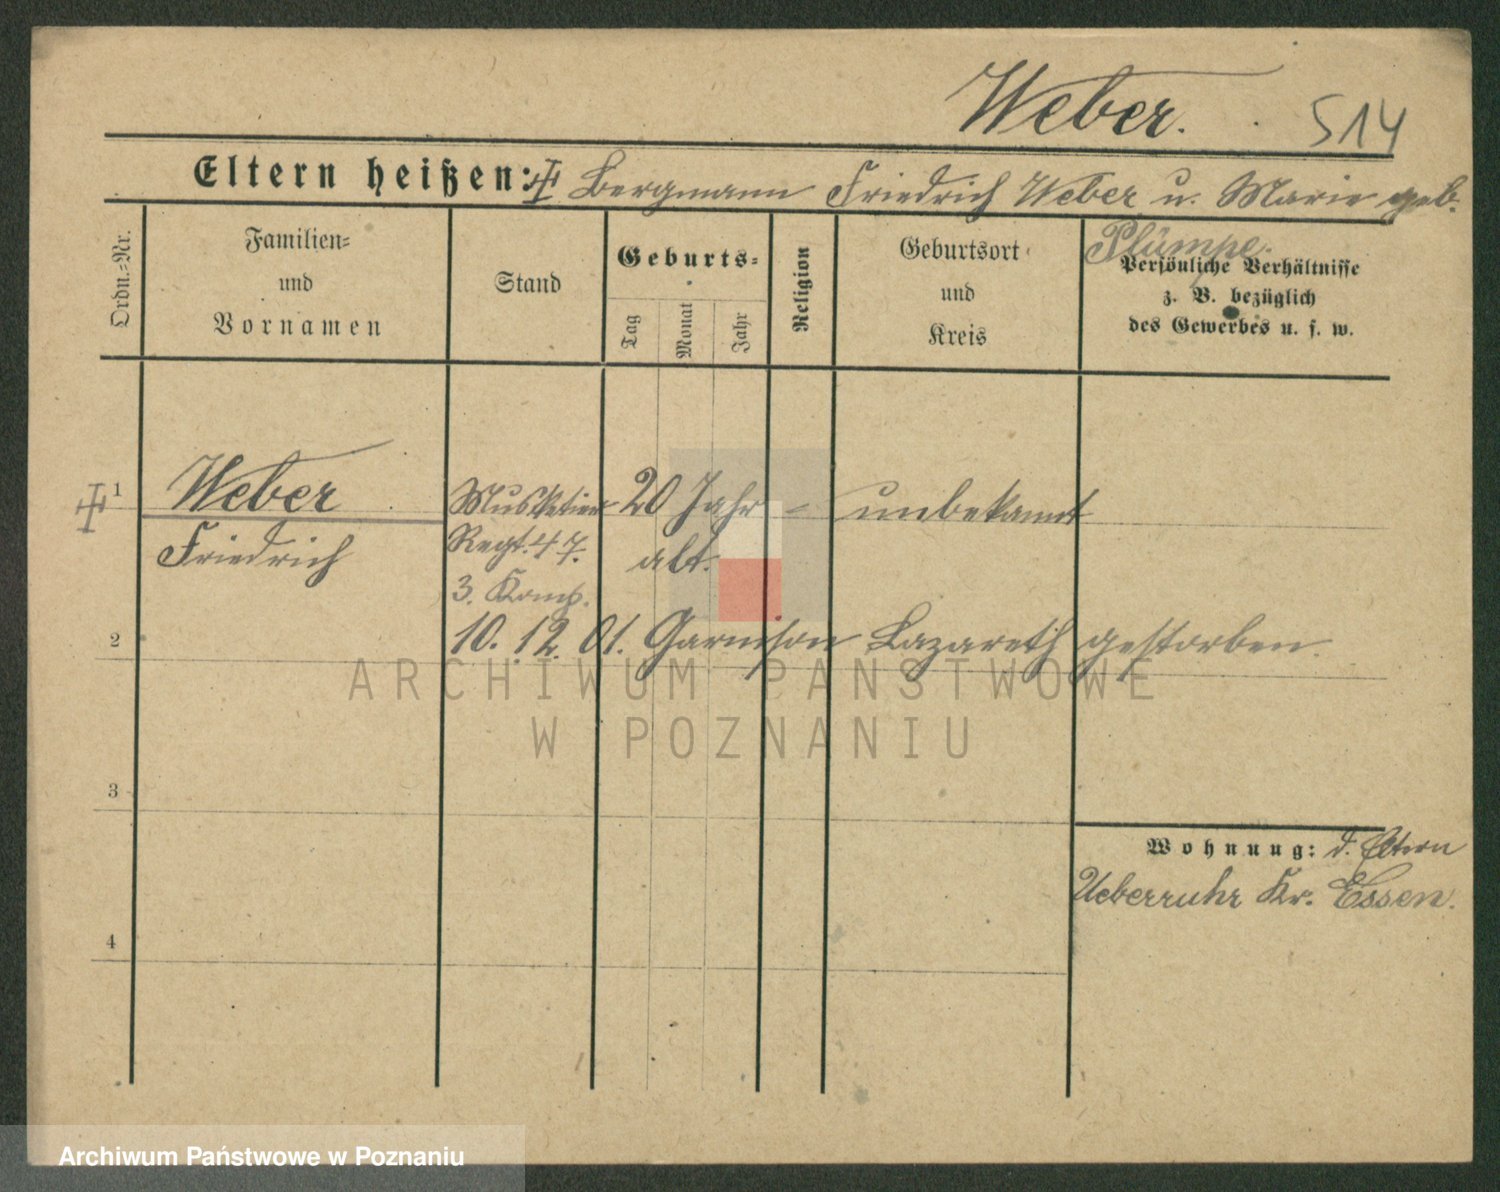 Weber. 514
Eltern heißen: Bergmann Friedrich Weber u. Marie geb.
Plümpe.
Ordn.=Nr.
Familien=
und
Vornamen
Stand
Geburts=
Tag
Monat
Jahr
Religion
Geburtsort
und
Kreis
Persönliche Verhältnisse
z. B. bezüglich
des Gewerbes u. s. w.
1 Weber Musketier 20 Jahr - unbekannt
Friedrich Regt. 47. alt.
3. Komp.
2 10. 12. 01. Garnison Lazareth gestorben.
ARCHIWUM PAŃSTWOWE
W POZNANIU
3
Wohnung: d. Eltern
Ueberruhr Kr. Essen.
4
Archiwum Państwowe w Poznaniu